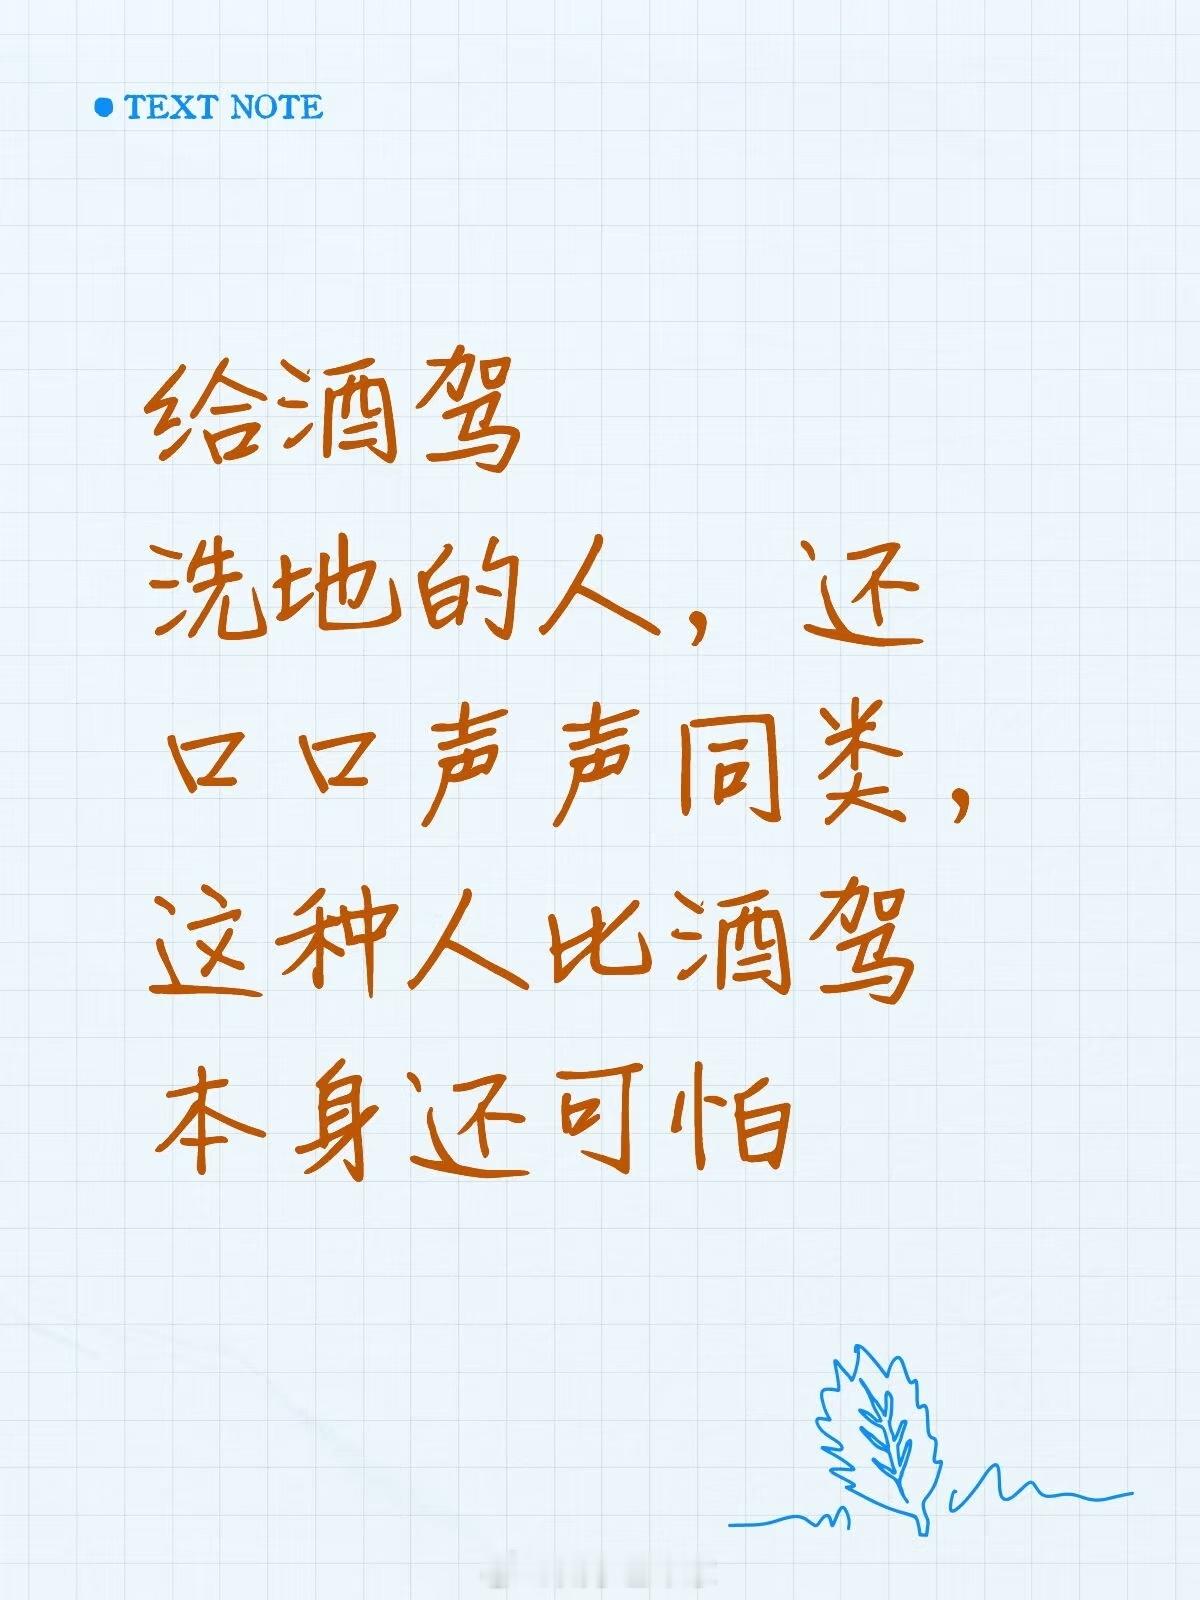 TEXT NOTE
给酒驾
洗地的人，还
口口声声同类，
这种人比酒驾
本身还可怕